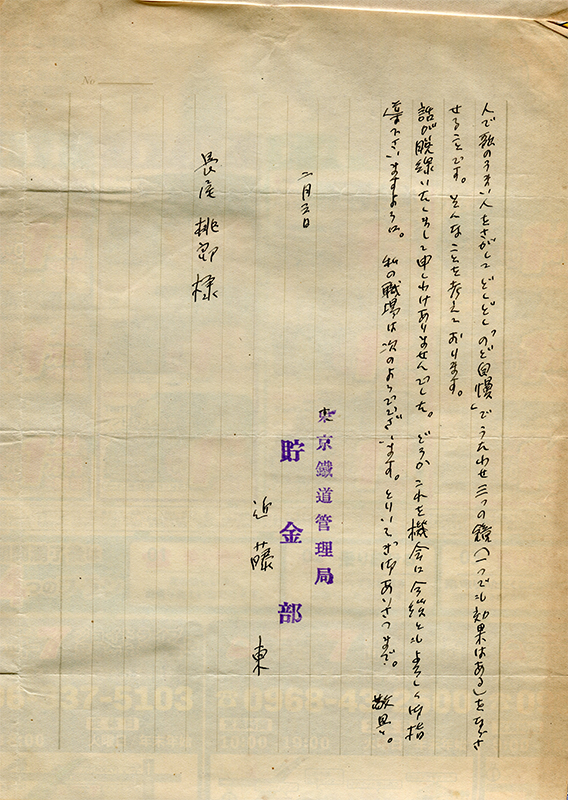 No
人で歌のうまい人をさがしてどしどし「のど自慢」でうたわせ三つの鐘(一つでも効果はある)をなさ
せることです。そんなことを考えております。
話が脱線いたしまして申しわけありませんでした。どうかこれを機会に今後ともよろしく御指
導下さいますように。私の職場は次のようでございます。とりいそぎ御あいさつまで。敬具。
二月三日
長尾桃郎様
東京鐵道管理局
貯金部
近藤東